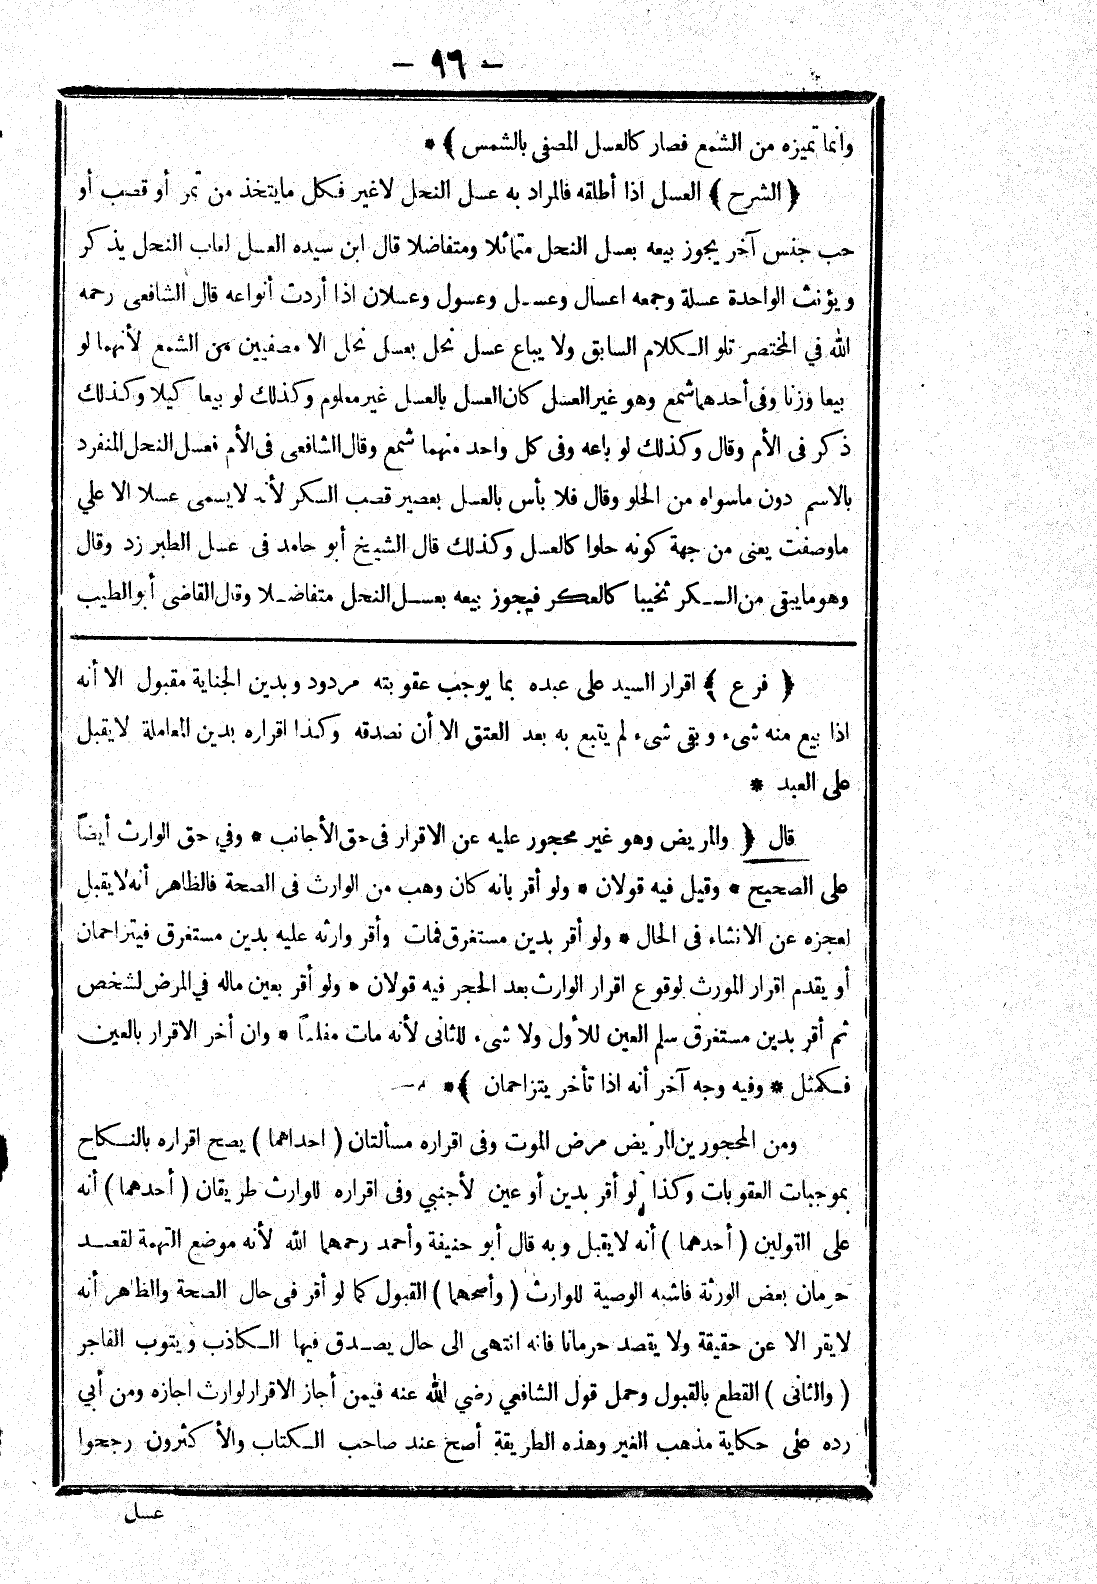 - ٩٦ -
وانما تميزه من الشمع فصار كالعسل المصفى بالشمس ﴾ *
﴿ الشرح ﴾ العسل اذا أطلقه فالمراد به عسل النحل لاغير فكل مايتخذ من تمر أو قصب أو
حب جنس آخر يجوز بيعه بعسل النحل متماثلا ومتفاضلا قال ابن سيده العسل لعاب النحل يذكر
ويؤنث الواحدة عسلة وجمعه اعسال وعسل وعسول وعسلان اذا أردت أنواعه قال الشافعى رحمه
الله في المختصر تلو الكلام السابق ولا يباع عسل نحل بعسل نحل الا مصفيين من الشمع لأنهما لو
بيعا وزنا وفى أحدهما شمع وهو غير العسل كان العسل بالعسل غير معلوم وكذلك لو بيعا كيلا وكذلك
ذكر فى الأم وقال وكذلك لو باعه وفى كل واحد منهما شمع وقال الشافعى فى الأم فعسل النحل المنفرد
بالاسم دون ماسواه من الحلو وقال فلا بأس بالعسل بعصير قصب السكر لأنه لايسمى عسلا الا علي
ماوصفت يعنى من جهة كونه حلوا كالعسل وكذلك قال الشيخ أبو حامد فى عسل الطبر زد وقال
وهومايبقى من السكر ثخينا كالعكر فيجوز بيعه بعسل النحل متفاضلا وقال القاضى أبو الطيب
﴿ فرع ﴾ اقرار السيد على عبده بما يوجب عقوبته مردود وبدين الجناية مقبول الا أنه
اذا بيع منه شىء وبقى شىء لم يتبع به بعد العتق الا أن نصدقه وكذا اقراره بدين المعاملة لايقبل
على العبد *
قال ﴿ والمريض وهو غير محجور عليه عن الاقرار فى حق الأجانب * وفي حق الوارث أيضاً
على الصحيح * وقيل فيه قولان * ولو أقر بانه كان وهب من الوارث فى الصحة فالظاهر أنه لايقبل
لعجزه عن الانشاء فى الحال * ولو أقر بدين مستغرق فمات وأقر وارثه عليه بدين مستغرق فيتزاحمان
أو يقدم اقرار المورث لوقوع اقرار الوارث بعد الحجر فيه قولان * ولو أقر بعين ماله في المرض لشخص
ثم أقر بدين مستغرق سلم العين للأول ولا شىء للثانى لأنه مات مفلساً * وان أخر الاقرار بالعين
فكمثل * وفيه وجه آخر أنه اذا تأخر يتزاحمان ﴾ *
ومن المحجورين المريض مرض الموت وفى اقراره مسألتان ( احداهما ) يصح اقراره بالنكاح
بموجبات العقوبات وكذا لو أقر بدين أو عين لأجنبي وفى اقراره للوارث طريقان ( أحدهما ) أنه
على القولين ( أحدهما ) أنه لايقبل وبه قال أبو حنيفة وأحمد رحمهما الله لأنه موضع التهمة لقصد
حرمان بعض الورثة فاشبه الوصية للوارث ( وأصحهما ) القبول كما لو أقر فى حال الصحة والظاهر أنه
لايقر الا عن حقيقة ولا يقصد حرمانا فانه انتهى الى حال يصدق فيها الكاذب ويتوب الفاجر
( والثانى ) القطع بالقبول وحمل قول الشافعي رضي الله عنه فيمن أجاز الاقرار لوارث اجازه ومن أبي
رده على حكاية مذهب الغير وهذه الطريقة أصح عند صاحب الكتاب والأكثرون رجحوا
عسل